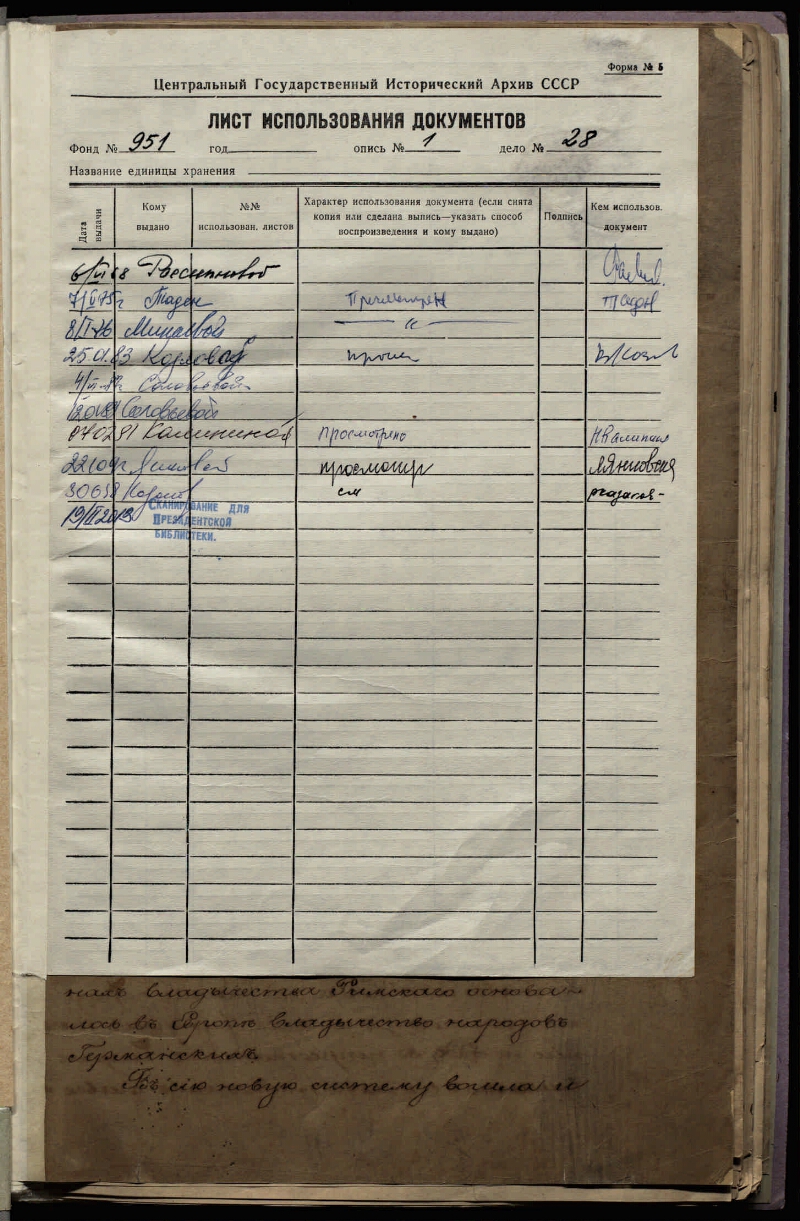 Форма № 5
Центральный Государственный Исторический Архив СССР
ЛИСТ ИСПОЛЬЗОВАНИЯ ДОКУМЕНТОВ
Фонд № 951 год опись № 1 дело № 28
Название единицы хранения
Дата выдачи
Кому выдано
№№ использован. листов
Характер использования документа (если снята
копия или сделана выпись—указать способ
воспроизведения и кому выдано)
Подпись
Кем использов. документ
6/VI 68
7/VI 75 г Таден Просмотрен Таден
8/II 76 Минаевой — " —
25.01.83 Козловой просм
Соловьевой
Соловьевой
070291 Калининой Просмотрено НКалинина
просмотр
30658 см
19/II 2013 Сканирование для
Президентской
библиотеки.
владычества Римскаго основа=
лось въ Европѣ владычество народовъ
Германскихъ.
Въ сію новую систему вошла и